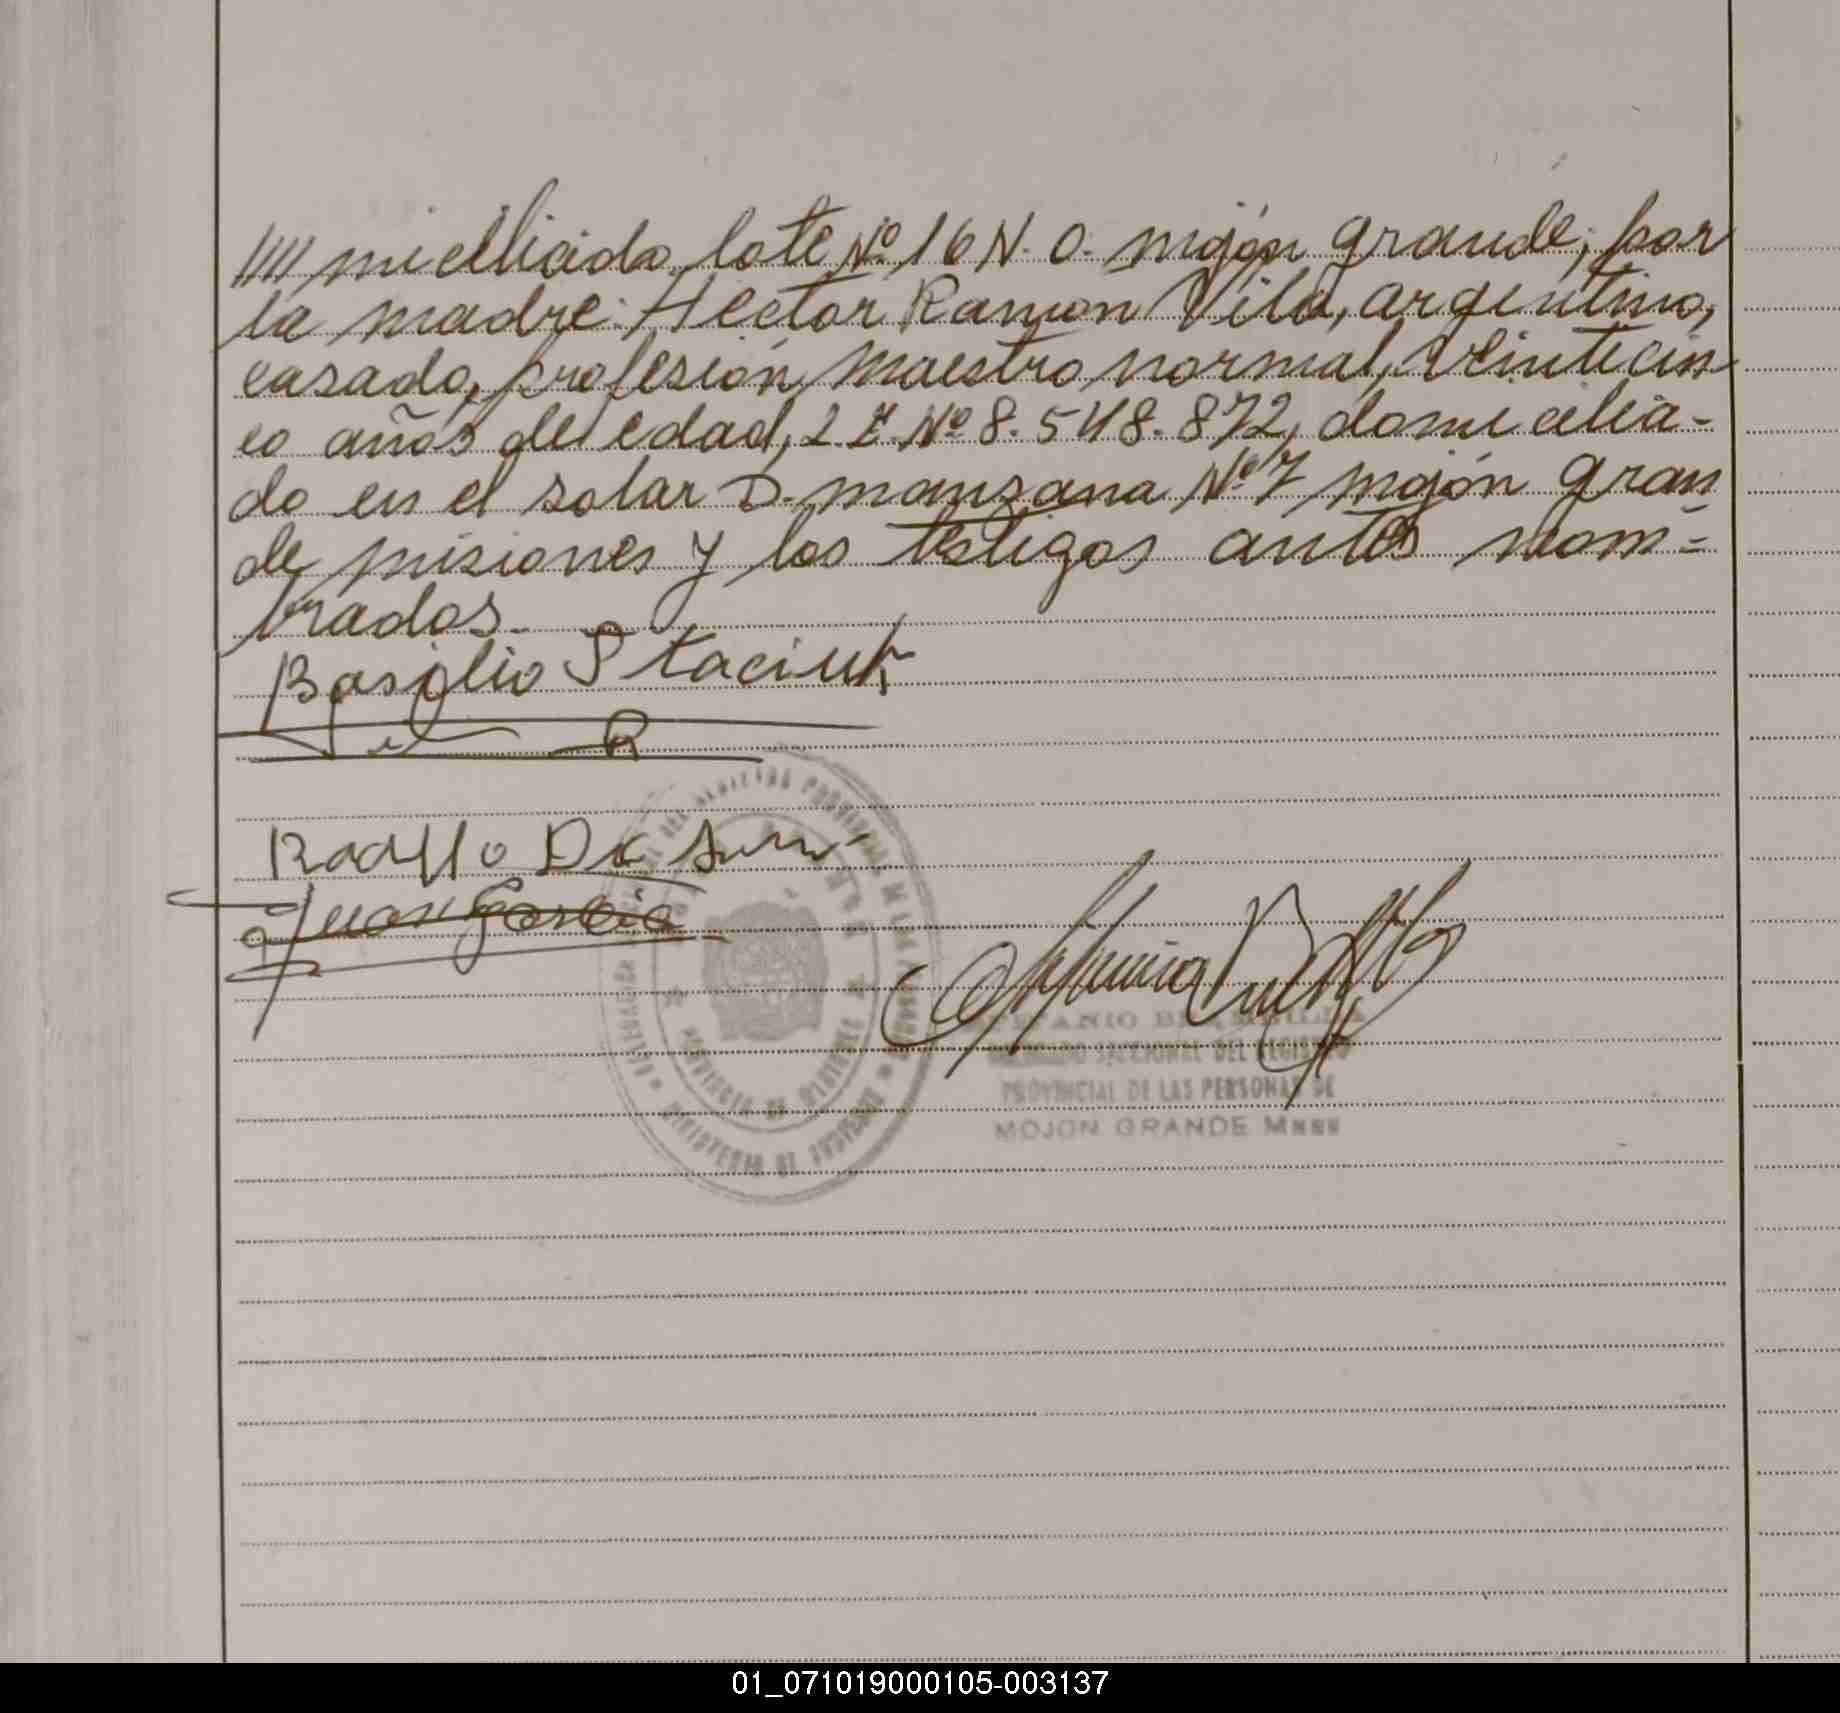 //// micilliado lote Nº 16 N. O. mojón grande; por
la madre: Hector Ramon Vila, argentino,
casado, profesión maestro normal, veinticin
co años de edad, L. E. Nº 8.548.872, domicilia-
do en el solar D. manzana Nº 7 mojón gran
de misiones y los testigos antes nom-
brados.
Basiglio Staciuk
Rodolfo Da
Juan Garcia
PROVINCIA DE MISIONES
MINISTERIO DE
SECCIONAL DEL REGISTRO
PROVINCIAL DE LAS PERSONAS DE
MOJON GRANDE
01_071019000105-003137